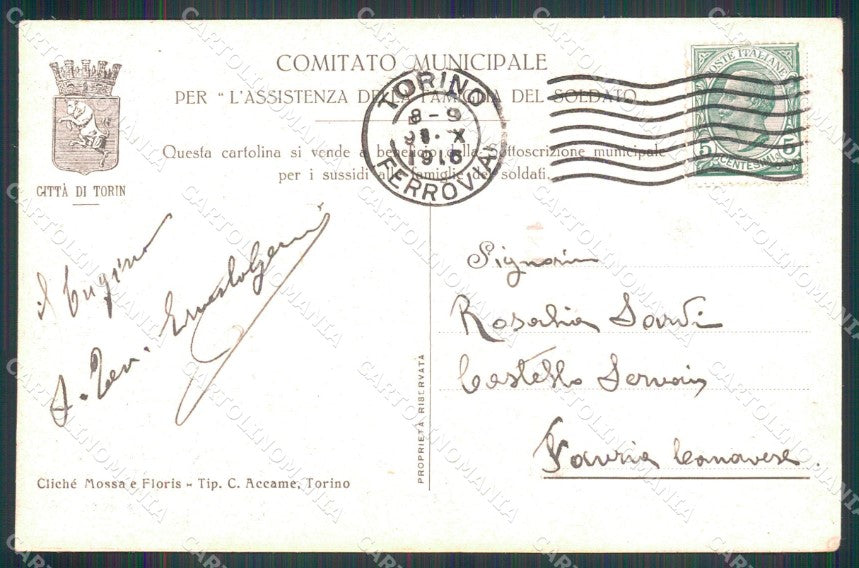 COMITATO MUNICIPALE
PER "L'ASSISTENZA DELLA FAMIGLIA DEL SOLDATO"
Questa cartolina si vende a beneficio della sottoscrizione municipale
per i sussidi alle famiglie dei soldati.
CITTÀ DI TORIN
TORINO
8-9
X
1916
FERROVIA
POSTE ITALIANE
5 CENTESIMI 5
il Cugino
S. Ten. Ernesto
Signorina
Rosalia
Castello
Favria Canavese.
PROPRIETÀ RISERVATA
Cliché Mossa e Floris - Tip. C. Accame, Torino
CARTOLINOMANIA